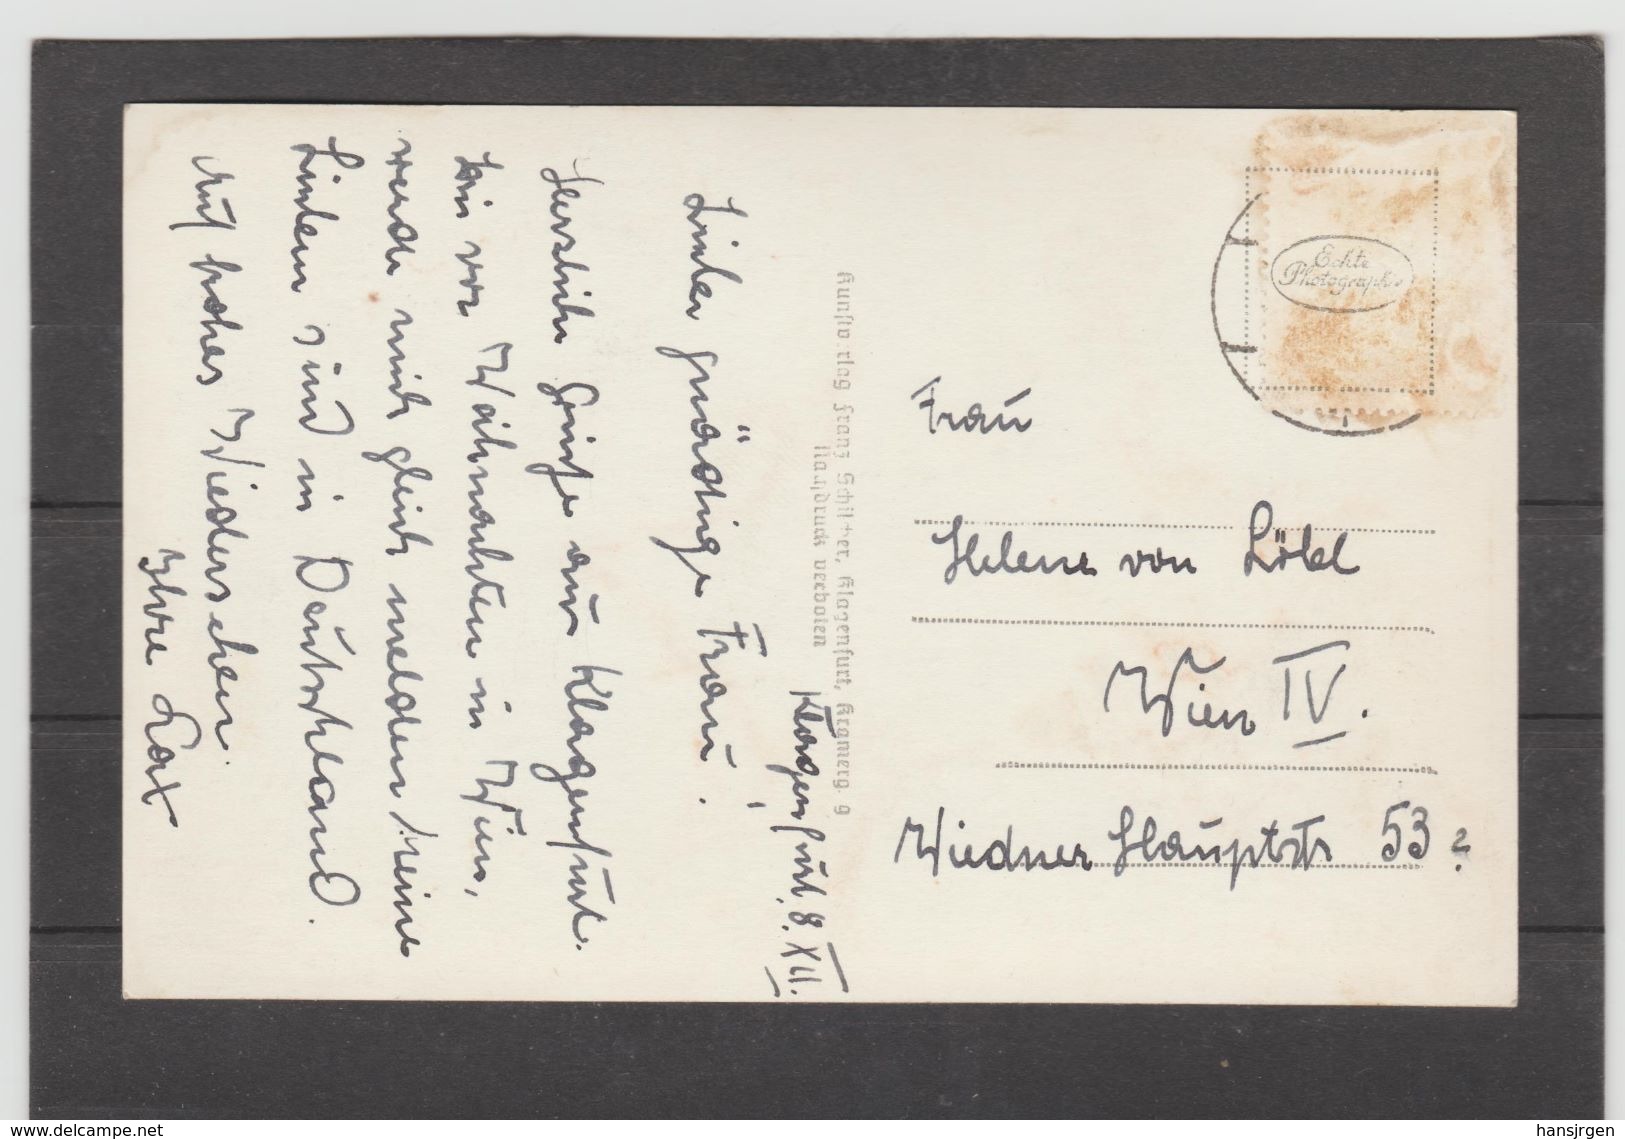 Klagenfurt, 8. XII.
Liebe gnädige Frau!
Herzliche Grüße aus Klagenfurt.
Bin vor Weihnachten in Wien,
werde mich gleich melden. Meine
Lieben sind in Deutschland.
Auf frohes Wiedersehen
Ihre
Kunstverlag Franz Schilcher, Klagenfurt, Kramerg. 9
Nachdruck verboten
Echte
Photographie
Frau
Helene von Löbl
Wien IV.
Wiedner Hauptstr 53
www.delcampe.net
hansjrgen